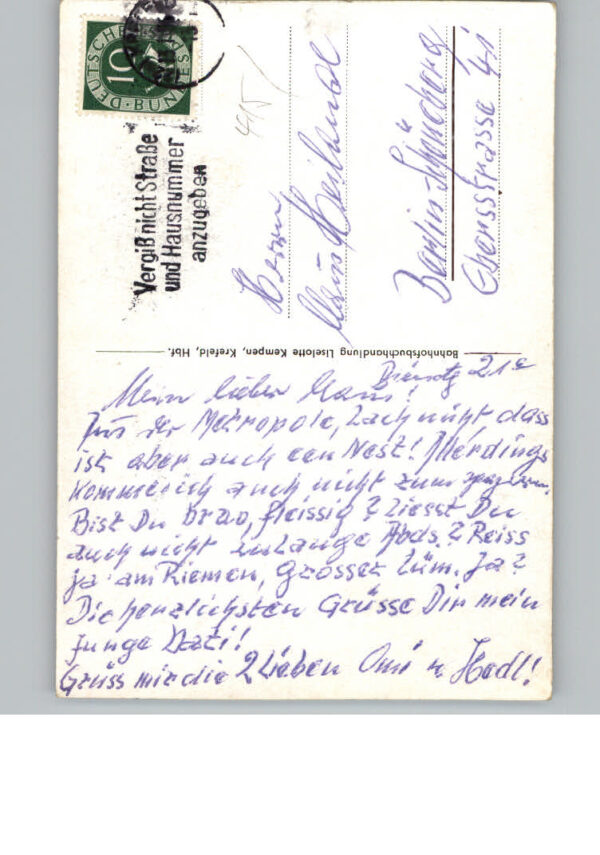 DEUTSCHE BUNDESPOST
10
Vergiß nicht Straße
und Hausnummer
anzugeben
415/
Herrn
Berlin Schöneberg
Ebersstrasse 41
Bahnhofsbuchhandlung Liselotte Kempen, Krefeld, Hbf.
21
Mein lieber Hans!
der Metropole, Lach nicht, dass
ist aber auch een Nest! Allerdings
komme ich auch nicht zum
Bist Du brav, fleissig? Liesst Du
auch nicht zu lange Abds.? Reiss
ja am Riemen, Grosser Lüm. Ja?
Die herzlichsten Grüsse Dir mein
Junge Vati!
Grüss mir die 2 Lieben Omi u. Hedl!